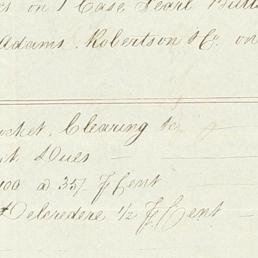 on 1 Case Pearl
Adams, Robertson & Co. on
ocket, Clearing
Dues
100 @ 35/ ⅌ Cent
Delcredere ½ ⅌ Cent